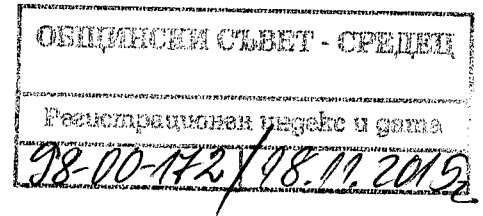 ОБЩИНСКИ СЪВЕТ - СРЕДЕЦ
Регистрационен индекс и дата
98-00-172/18.11.2015г